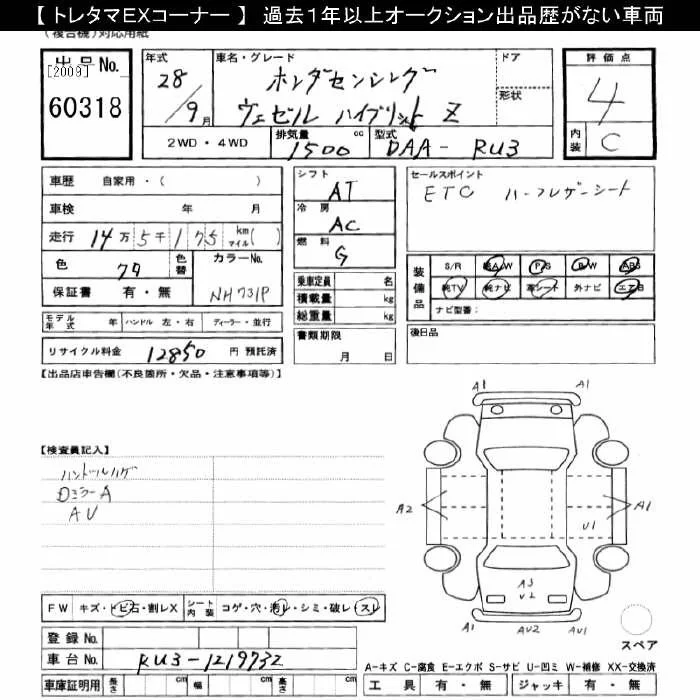 【 トレタマEXコーナー 】 過去1年以上オークション出品歴がない車両
(複合機)対応用紙
[2009]
出品No.
60318
年式
28/9月
車名・グレード
ホンダセンシング
ヴェゼル ハイブリット Z
ドア
形状
評価点
4
内装
C
2WD・4WD
排気量
1500
cc
型式
DAA- RU3
車歴 自家用・( )
車検 年 月
走行 14万5千175 km マイル( )
色 クロ
色替
カラーNo.
NH731P
保証書 有・無
モデル年式 年 ハンドル 左・右 ディーラー・並行
リサイクル料金 12850 円 預託済
シフト
AT
冷房
AC
燃料
G
乗車定員 名
積載量 kg
総重量 kg
書類期限
月 日
セールスポイント
ETC ハーフレザーシート
装備品
S/R 純A/W P/S P/W ABS
純TV 純ナビ 革シート 外ナビ エアB
ナビ型番:
後日品
【出品店申告欄(不良箇所・欠品・注意事項等)】
【検査員記入】
ハンドルハゲ
Dミラー A
AU
A1 A1
A2
A1
U1
A3
U2
A1 AU2 AU1
スペア
FW キズ・トビ石・割レX
シート内装 コゲ・穴・汚レ・シミ・破レ・スレ
登録No.
車台No. RU3-1219732
車庫証明用 長さ cm 幅 cm 高さ cm
A-キズ C-腐食 E-エクボ S-サビ U-凹ミ W-補修 XX-交換済
工具 有・無 ジャッキ 有・無